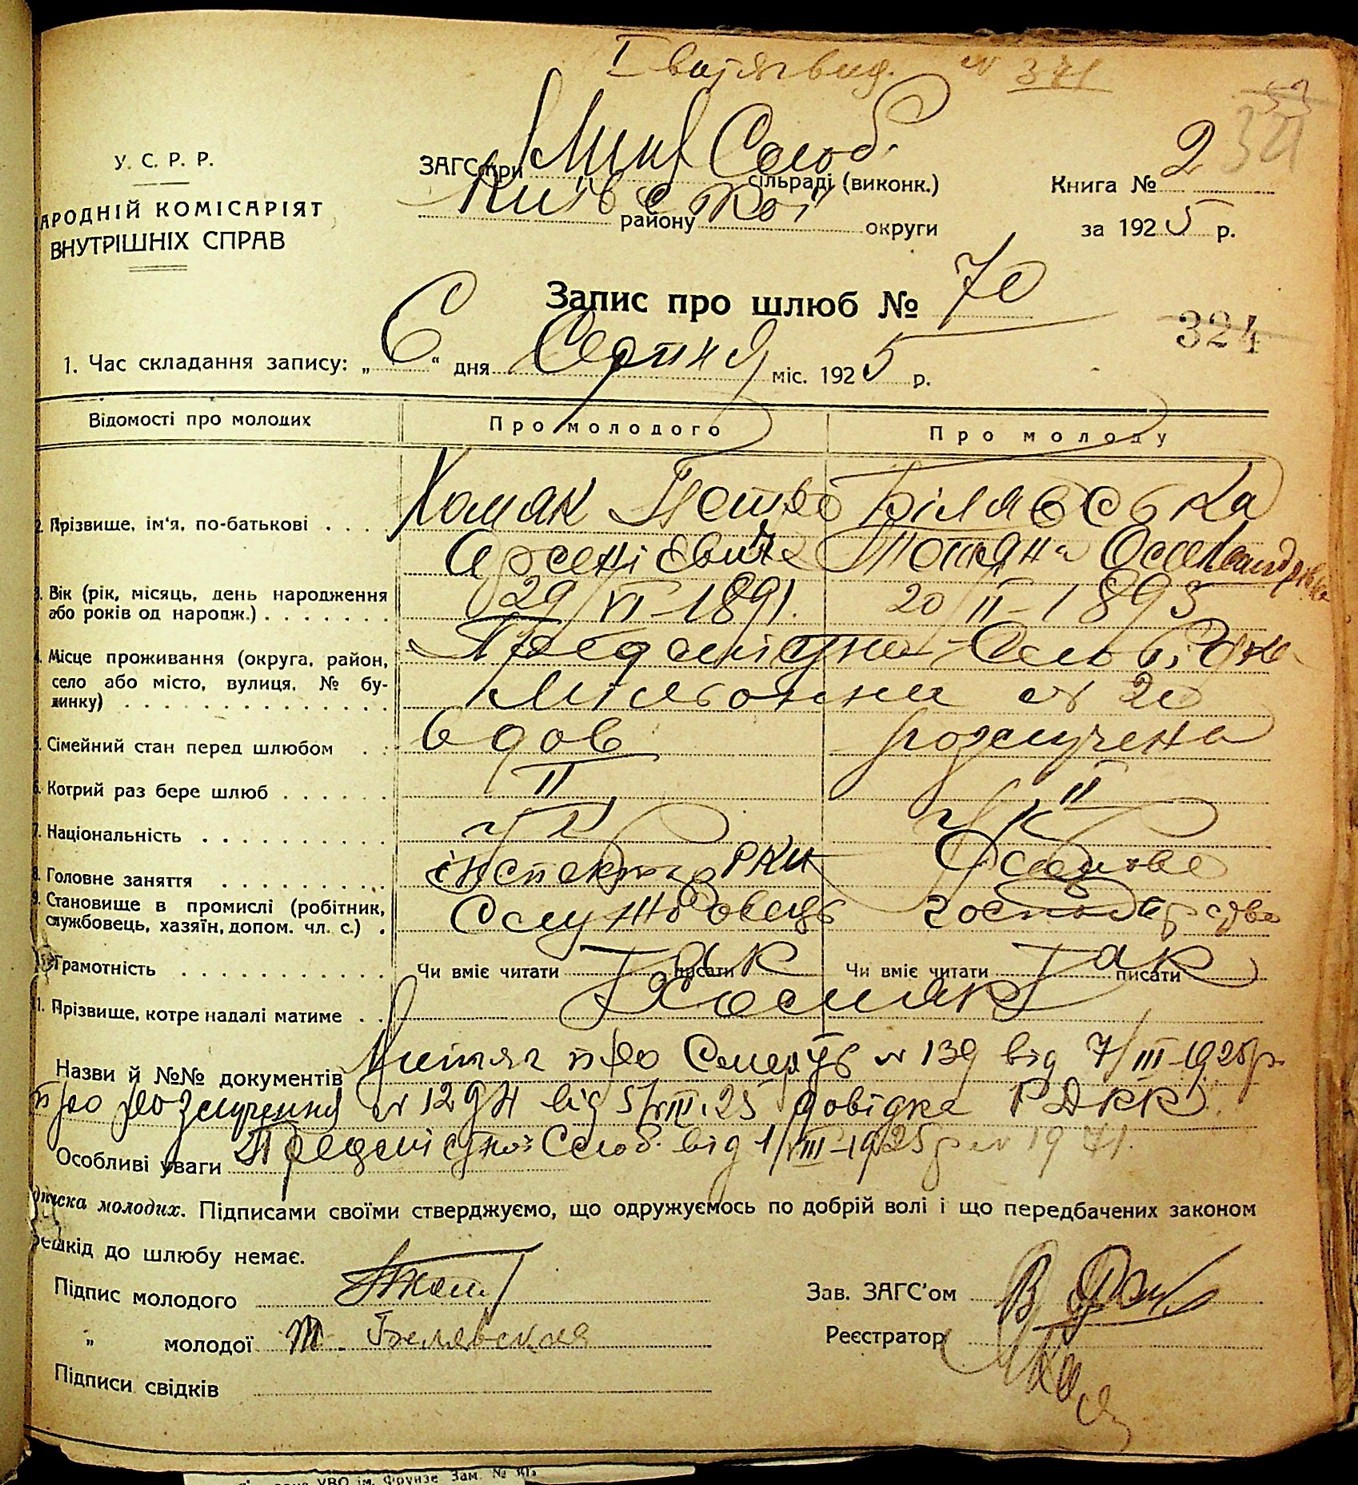 I витяг вид. № 371
53
321
У. С. Р. Р.
АРОДНІЙ КОМІСАРІЯТ
ВНУТРІШНІХ СПРАВ
ЗАГС при Мик Слоб. сільраді (виконк.)
Київської району округи
Книга № 2
за 1925 р.
Запис про шлюб № 70
324
1. Час складання запису: „ 6 “ дня Серпня міс. 1925 р.
Відомості про молодих Про молодого Про молоду
2. Прізвище, ім'я, по-батькові Хомяк Петро Білявська
Арсенієвич Тотяна Олександрівна
3. Вік (рік, місяць, день народження 29/VI-1891. 20/II-1893
або років од народж.)
4. Місце проживання (округа, район, Предмістна Слобідка
село або місто, вулиця, № бу-
динку) Мільонна № 20
5. Сімейний стан перед шлюбом вдов розлучена
6. Котрий раз бере шлюб II II
7. Національність Ук Ук
8. Головне заняття інспектор РКИ Домове
9. Становище в промислі (робітник, Служовець господарство
службовець, хазяїн, допом. чл. с.)
Грамотність Чи вміє читати так писати Чи вміє читати так писати
11. Прізвище, котре надалі матиме Хомяк
Назви й №№ документів Витяг про Смерть № 139 від 7/III-1925р.
про розлучення від довідка
Особливі уваги Предмістної Слоб. від 1/VIII-1925р № 1971.
дписка молодих. Підписами своїми стверджуємо, що одружуємось по добрій волі і що передбачених законом
решкід до шлюбу немає.
Підпис молодого
Зав. ЗАГС'ом
„ молодої Т. Билявская
Реєстратор
Підписи свідків
УВО ім. Фрунзе Зам. №